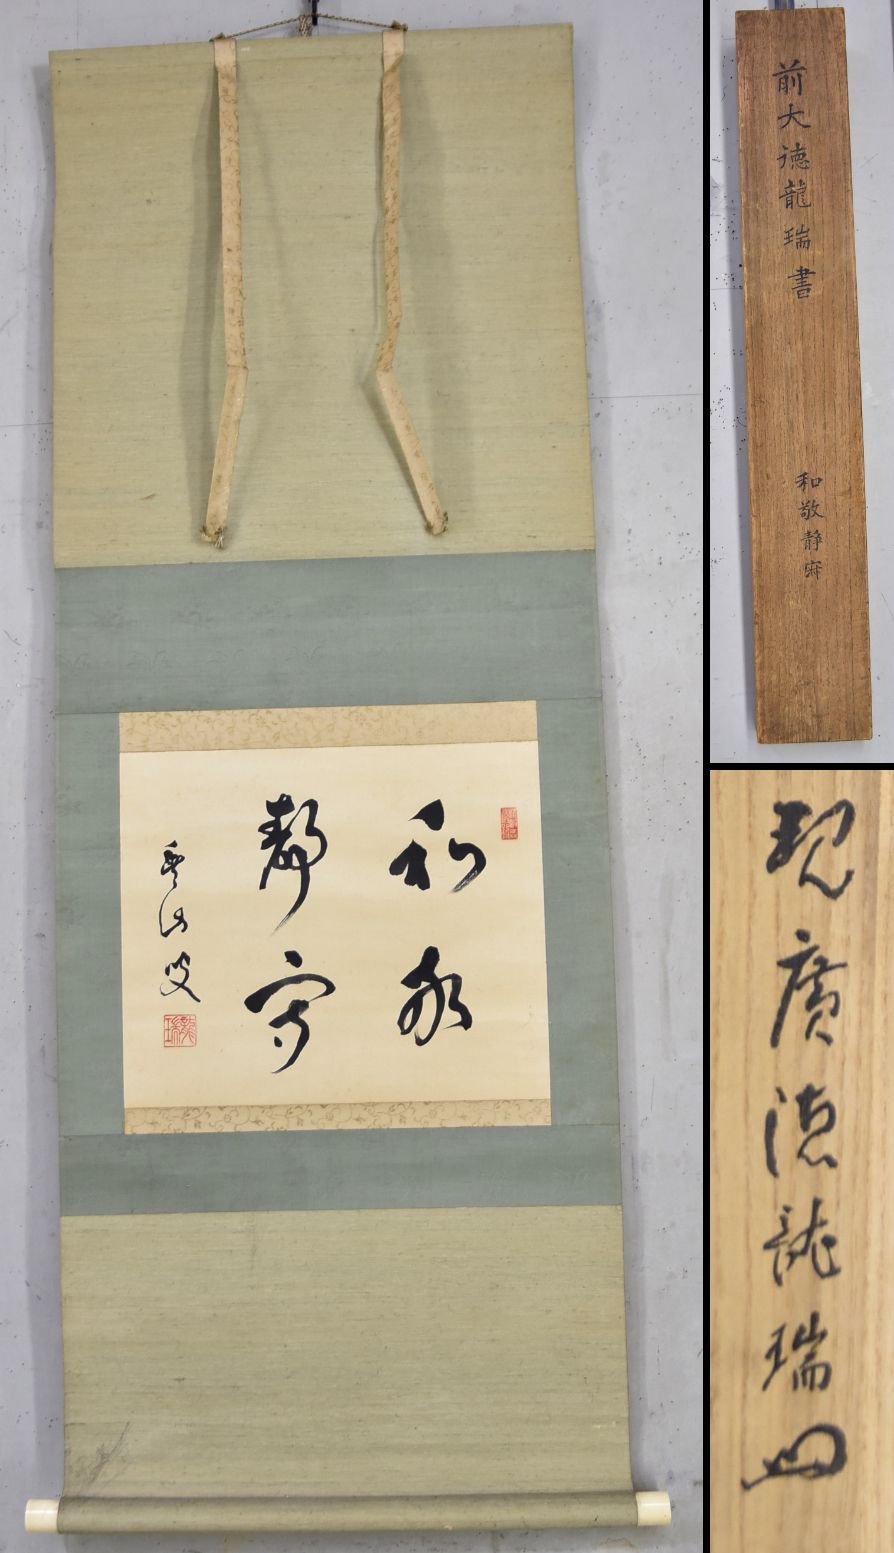 和敬
静寂
叟
龍瑞
前大徳龍瑞書
和敬静寂
現廣徳龍瑞